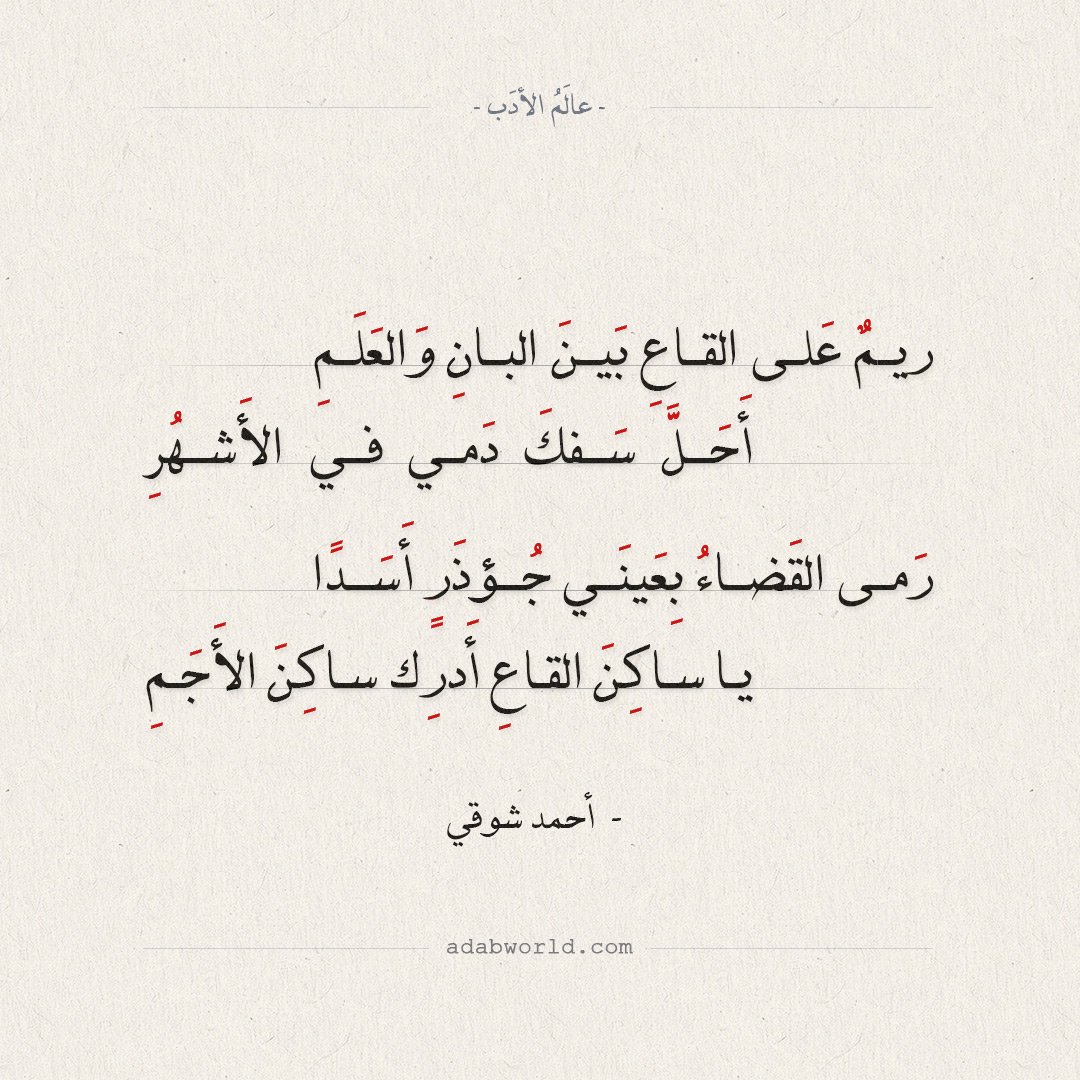 - عالَمُ الأدَب -
ريمٌ عَلى القاعِ بَينَ البانِ وَالعَلَمِ
أَحَلَّ سَفكَ دَمي في الأَشهُرِ
رَمى القَضاءُ بِعَينَي جُؤذَرٍ أَسَدًا
يا ساكِنَ القاعِ أَدرِك ساكِنَ الأَجَمِ
- أحمد شوقي
adabworld.com